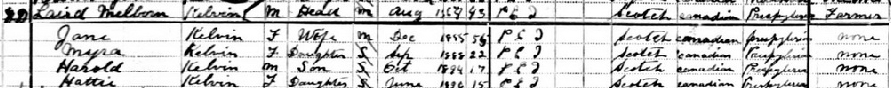 Laird Melborn Kelvin M Head M Aug 1857 53 P E I Scotch Canadian Presbyterian Farmer
Jane Kelvin F Wife M Dec 1855 56 P E I Scotch Canadian Presbyterian none
Myra Kelvin F Daughter S Sep 1888 22 P E I Scotch Canadian Presbyterian none
Harold Kelvin M Son S Oct 1894 17 P E I Scotch Canadian Presbyterian none
Hattie Kelvin F Daughter S June 1896 15 P E I Scotch Canadian Presbyterian none